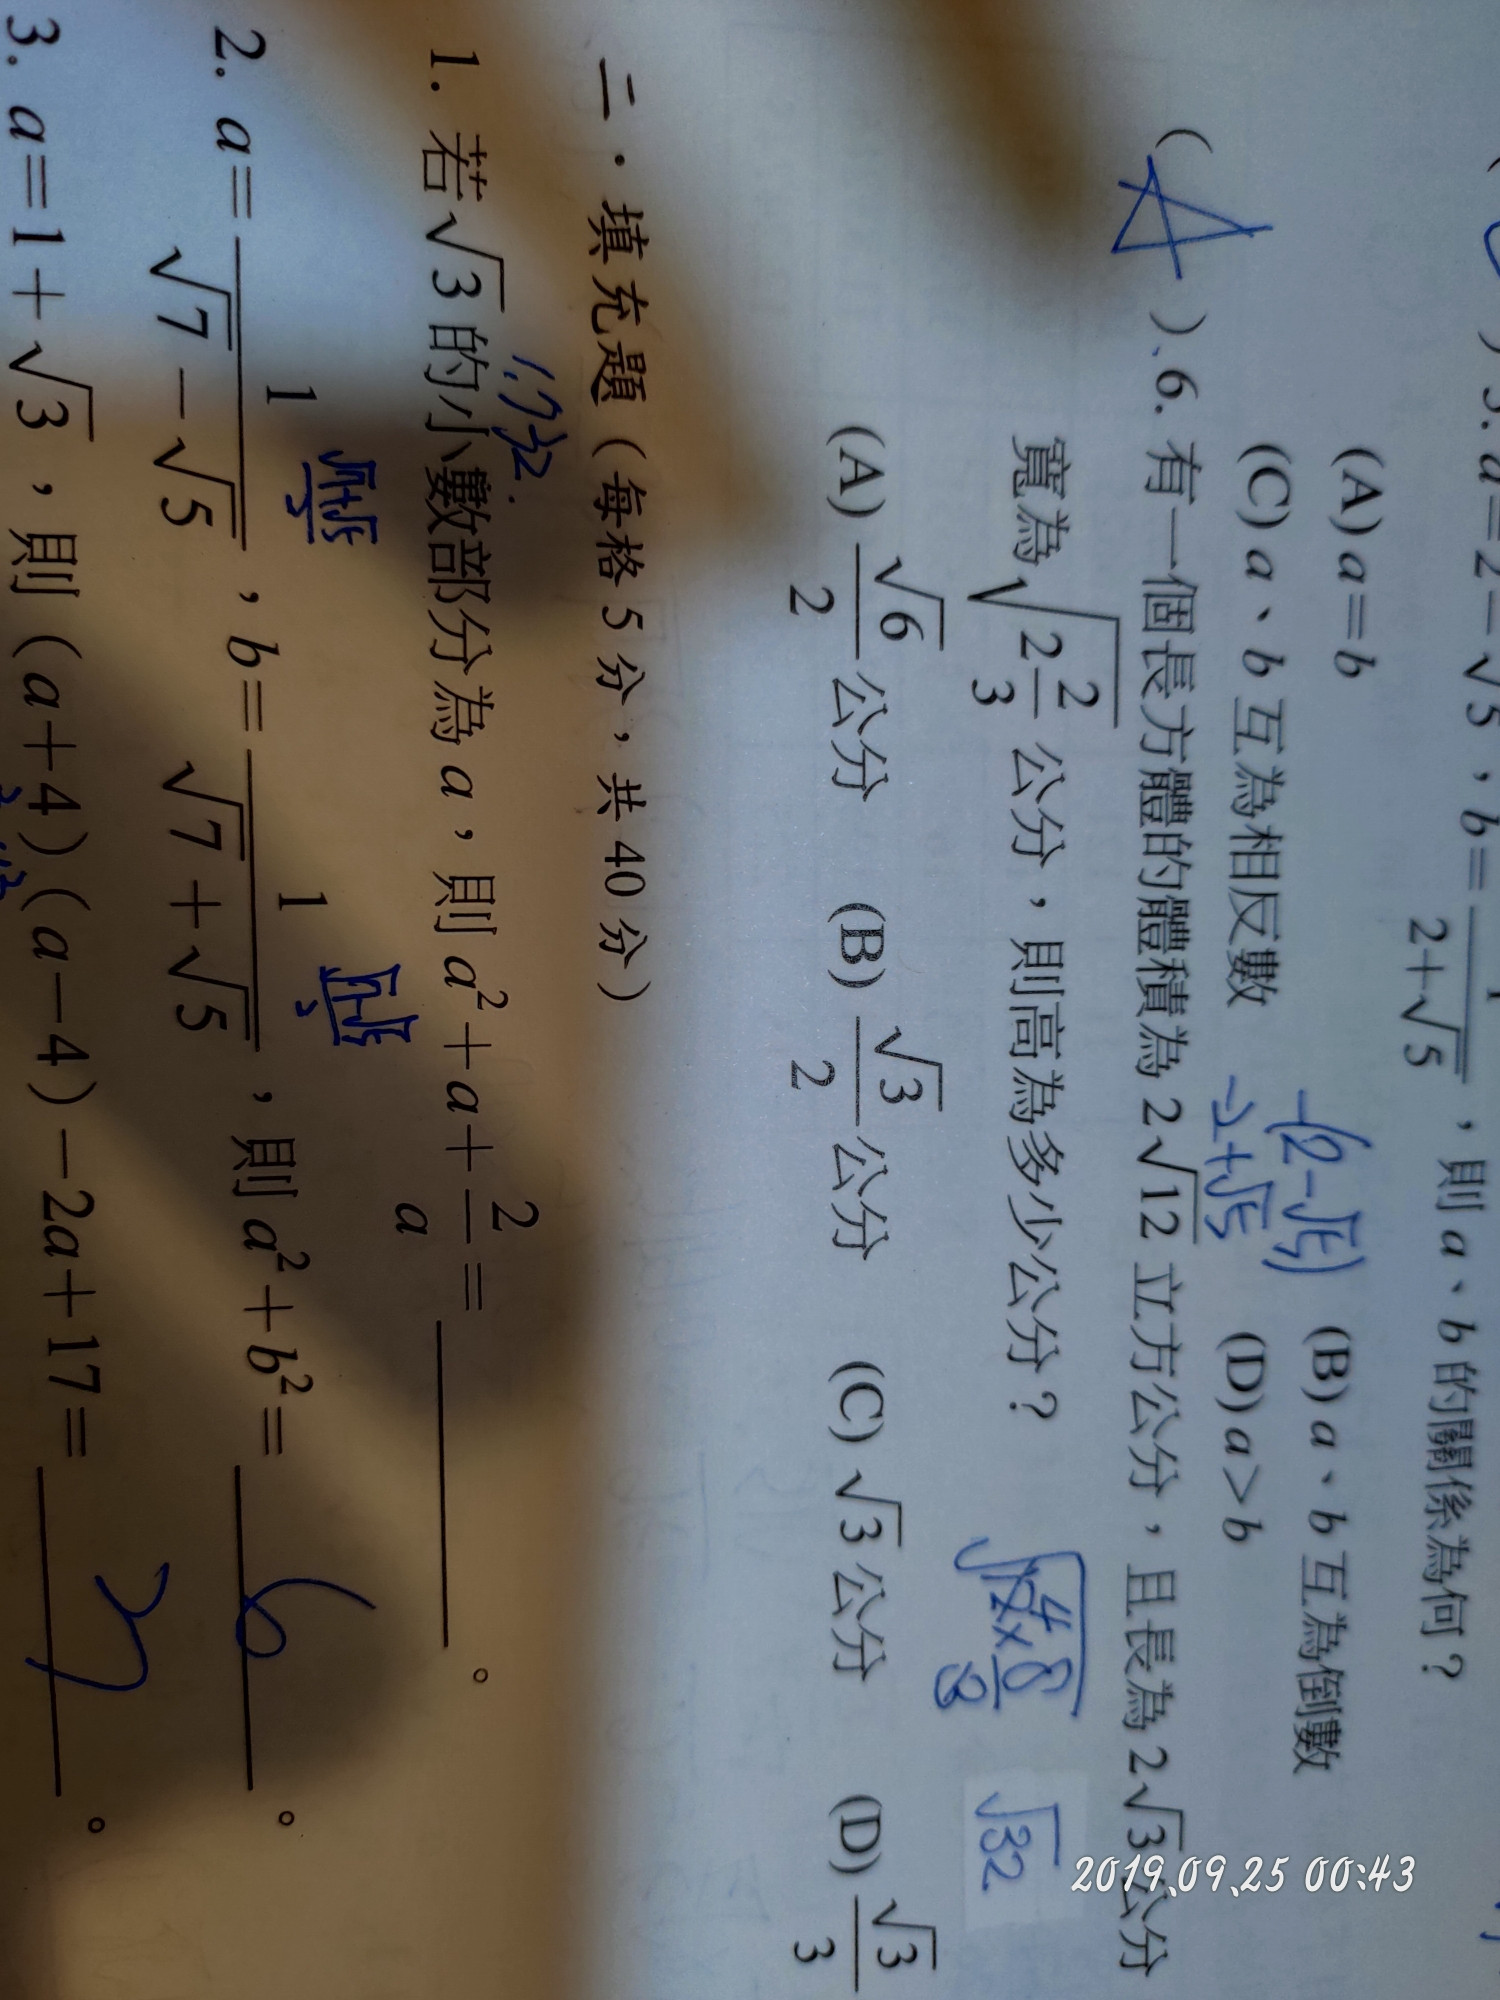 5. a=2-√5，b=1/(2+√5)，則 a、b 的關係為何？
(A) a=b (B) a、b 互為倒數
(C) a、b 互為相反數 (D) a>b
-(2-√5)
-2+√5
(A) 6. 有一個長方體的體積為 2√12 立方公分，且長為 2√3 公分
寬為 √(2 2/3) 公分，則高為多少公分？
√32
(A) √6/2 公分 (B) √3/2 公分 (C) √3 公分 (D) √3/3
二．填充題（每格 5 分，共 40 分）
1.732
1. 若 √3 的小數部分為 a，則 a²+a+2/a=______。
2. a=1/(√7-√5)，b=1/(√7+√5)，則 a²+b²=6。
(√7+√5)/2
(√7-√5)/2
3. a=1+√3，則（a+4）（a-4）-2a+17=______。
2019.09.25 00:43